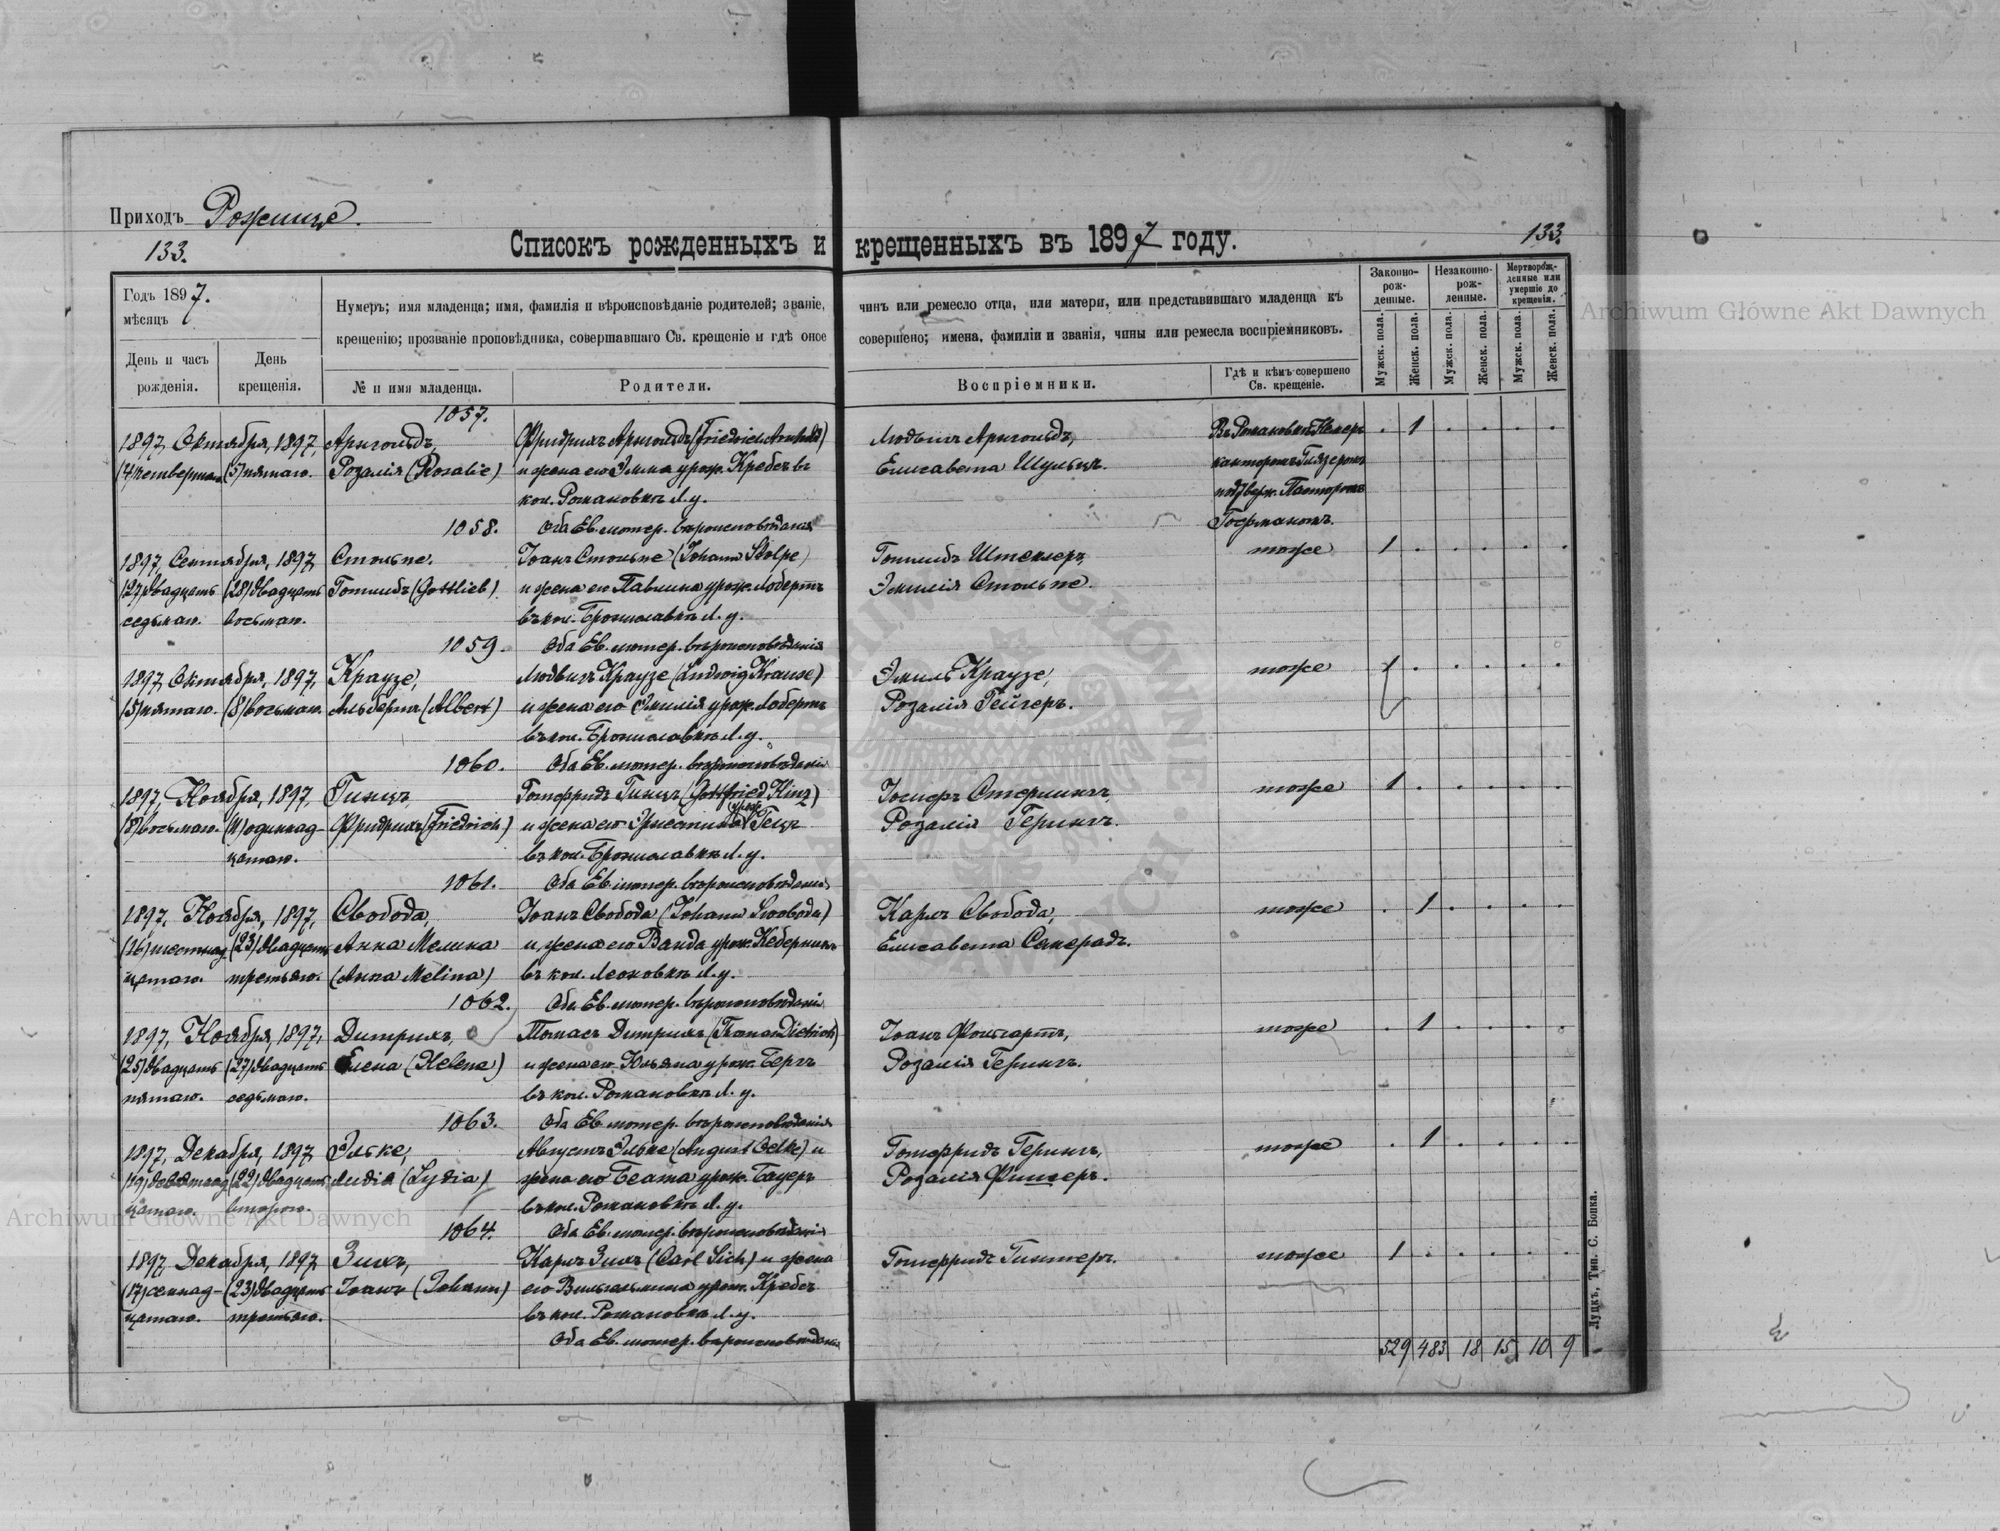 Приходъ Рожище.
133.
Списокъ рожденныхъ и крещенныхъ въ 1897 году.
133.
Годъ 1897.
мѣсяцъ
День и часъ рожденія.
День крещенія.
Нумеръ; имя младенца; имя, фамилія и вѣроисповѣданіе родителей; званіе, чинъ или ремесло отца, или матери, или представившаго младенца къ
крещенію; прозваніе проповѣдника, совершавшаго Св. крещеніе и гдѣ оное совершено; имена, фамиліи и званія, чины или ремесла воспріемниковъ.
№ и имя младенца.
Родители.
Воспріемники.
Гдѣ и кѣмъ совершено Св. крещеніе.
Законно-рожденные.
Незаконно-рожденные.
Мертворожденные или умершіе до крещенія.
Мужск. пола. Женск. пола. Мужск. пола. Женск. пола. Мужск. пола. Женск. пола.
1057.
1897, Октября, 1897, Арнгольдъ, Фридрихъ Арнгольдъ (Friedrich Arnhold) Людвигъ Арнгольдъ, Въ Романовкѣ 1
(4) четвертаго (5) пятаго. Розалія (Rosalie) и жена его Эмма урож. Кребсъ въ Елисавета Шульцъ. канторомъ
кол. Романовкѣ Л. у. Пасторомъ
1058. Оба Ев. лютер. вѣроисповѣданія
1897, Сентября, 1897, Стольпе. Іоанъ Стольпе (Johann Stolpe) Готлибъ тоже 1
(27) двадцать (28) двадцать Готлибъ (Gottlieb) и жена его Павлина урож. Лобертъ Эмилія Стольпе.
седьмаго. восьмаго. въ кол. Брониславкѣ Л. у.
1059. Оба Ев. лютер. вѣроисповѣданія
1897, Октября, 1897, Краузе, Людвигъ Краузе (Ludwig Krause) Эмиль Краузе, тоже 1
(5) пятаго. (8) восьмаго. Альбертъ (Albert) и жена его Эмилія урож. Лобертъ Розалія Гейгеръ.
въ кол. Брониславкѣ Л. у.
1060. Оба Ев. лютер. вѣроисповѣданія
1897, Ноября, 1897, Гинцъ, Готфридъ Гинцъ (Gottfried Hinz) Іосифъ Стерлингъ, тоже 1
(8) восьмаго. (11) одиннад- Фридрихъ (Friedrich) и жена его Эрнестина урож. Гецъ Розалія Герингъ.
цатаго. въ кол. Брониславкѣ Л. у.
1061. Оба Ев. лютер. вѣроисповѣданія
1897, Ноября, 1897, Свобода, Іоанъ Свобода (Johann Swoboda) Карлъ Свобода, тоже 1
(16) шестнад- (23) двадцать Анна Мелина и жена его Ванда урож. Елисавета
цатаго. третьяго. (Anna Melina) въ кол. Леоновкѣ Л. у.
1062. Оба Ев. лютер. вѣроисповѣданія
1897, Ноября, 1897, Дитрихъ, Томасъ Дитрихъ (Tomas Dietrich) Іоанъ тоже 1
(25) двадцать (27) двадцать Елена (Helena) и жена его Юльяна урож. Бергъ Розалія Герингъ.
пятаго. седьмаго. въ кол. Романовкѣ Л. у.
1063. Оба Ев. лютер. вѣроисповѣданія
1897, Декабря, 1897, Эльке, Августъ Эльке (August Oelke) и Готфридъ Герингъ, тоже 1
(19) девятнад- (22) двадцать Лидія (Lydia) жена его Беата урож. Бауеръ Розалія Фишеръ.
цатаго. втораго. въ кол. Романовкѣ Л. у.
1064. Оба Ев. лютер. вѣроисповѣданія
1897, Декабря, 1897, Зихъ, Карлъ Зихъ (Carl Sich) и жена Готфридъ Гинтеръ. тоже 1
(17) семнад- (23) двадцать Іоанъ (Johann) его Вильгельмина урож. Кребсъ
цатаго. третьяго. въ кол. Романовкѣ Л. у.
Оба Ев. лютер. вѣроисповѣданія
529 483 18 15 10 9
Луцкъ, Тип. С. Бонка.
Archiwum Główne Akt Dawnych
Archiwum Główne Akt Dawnych